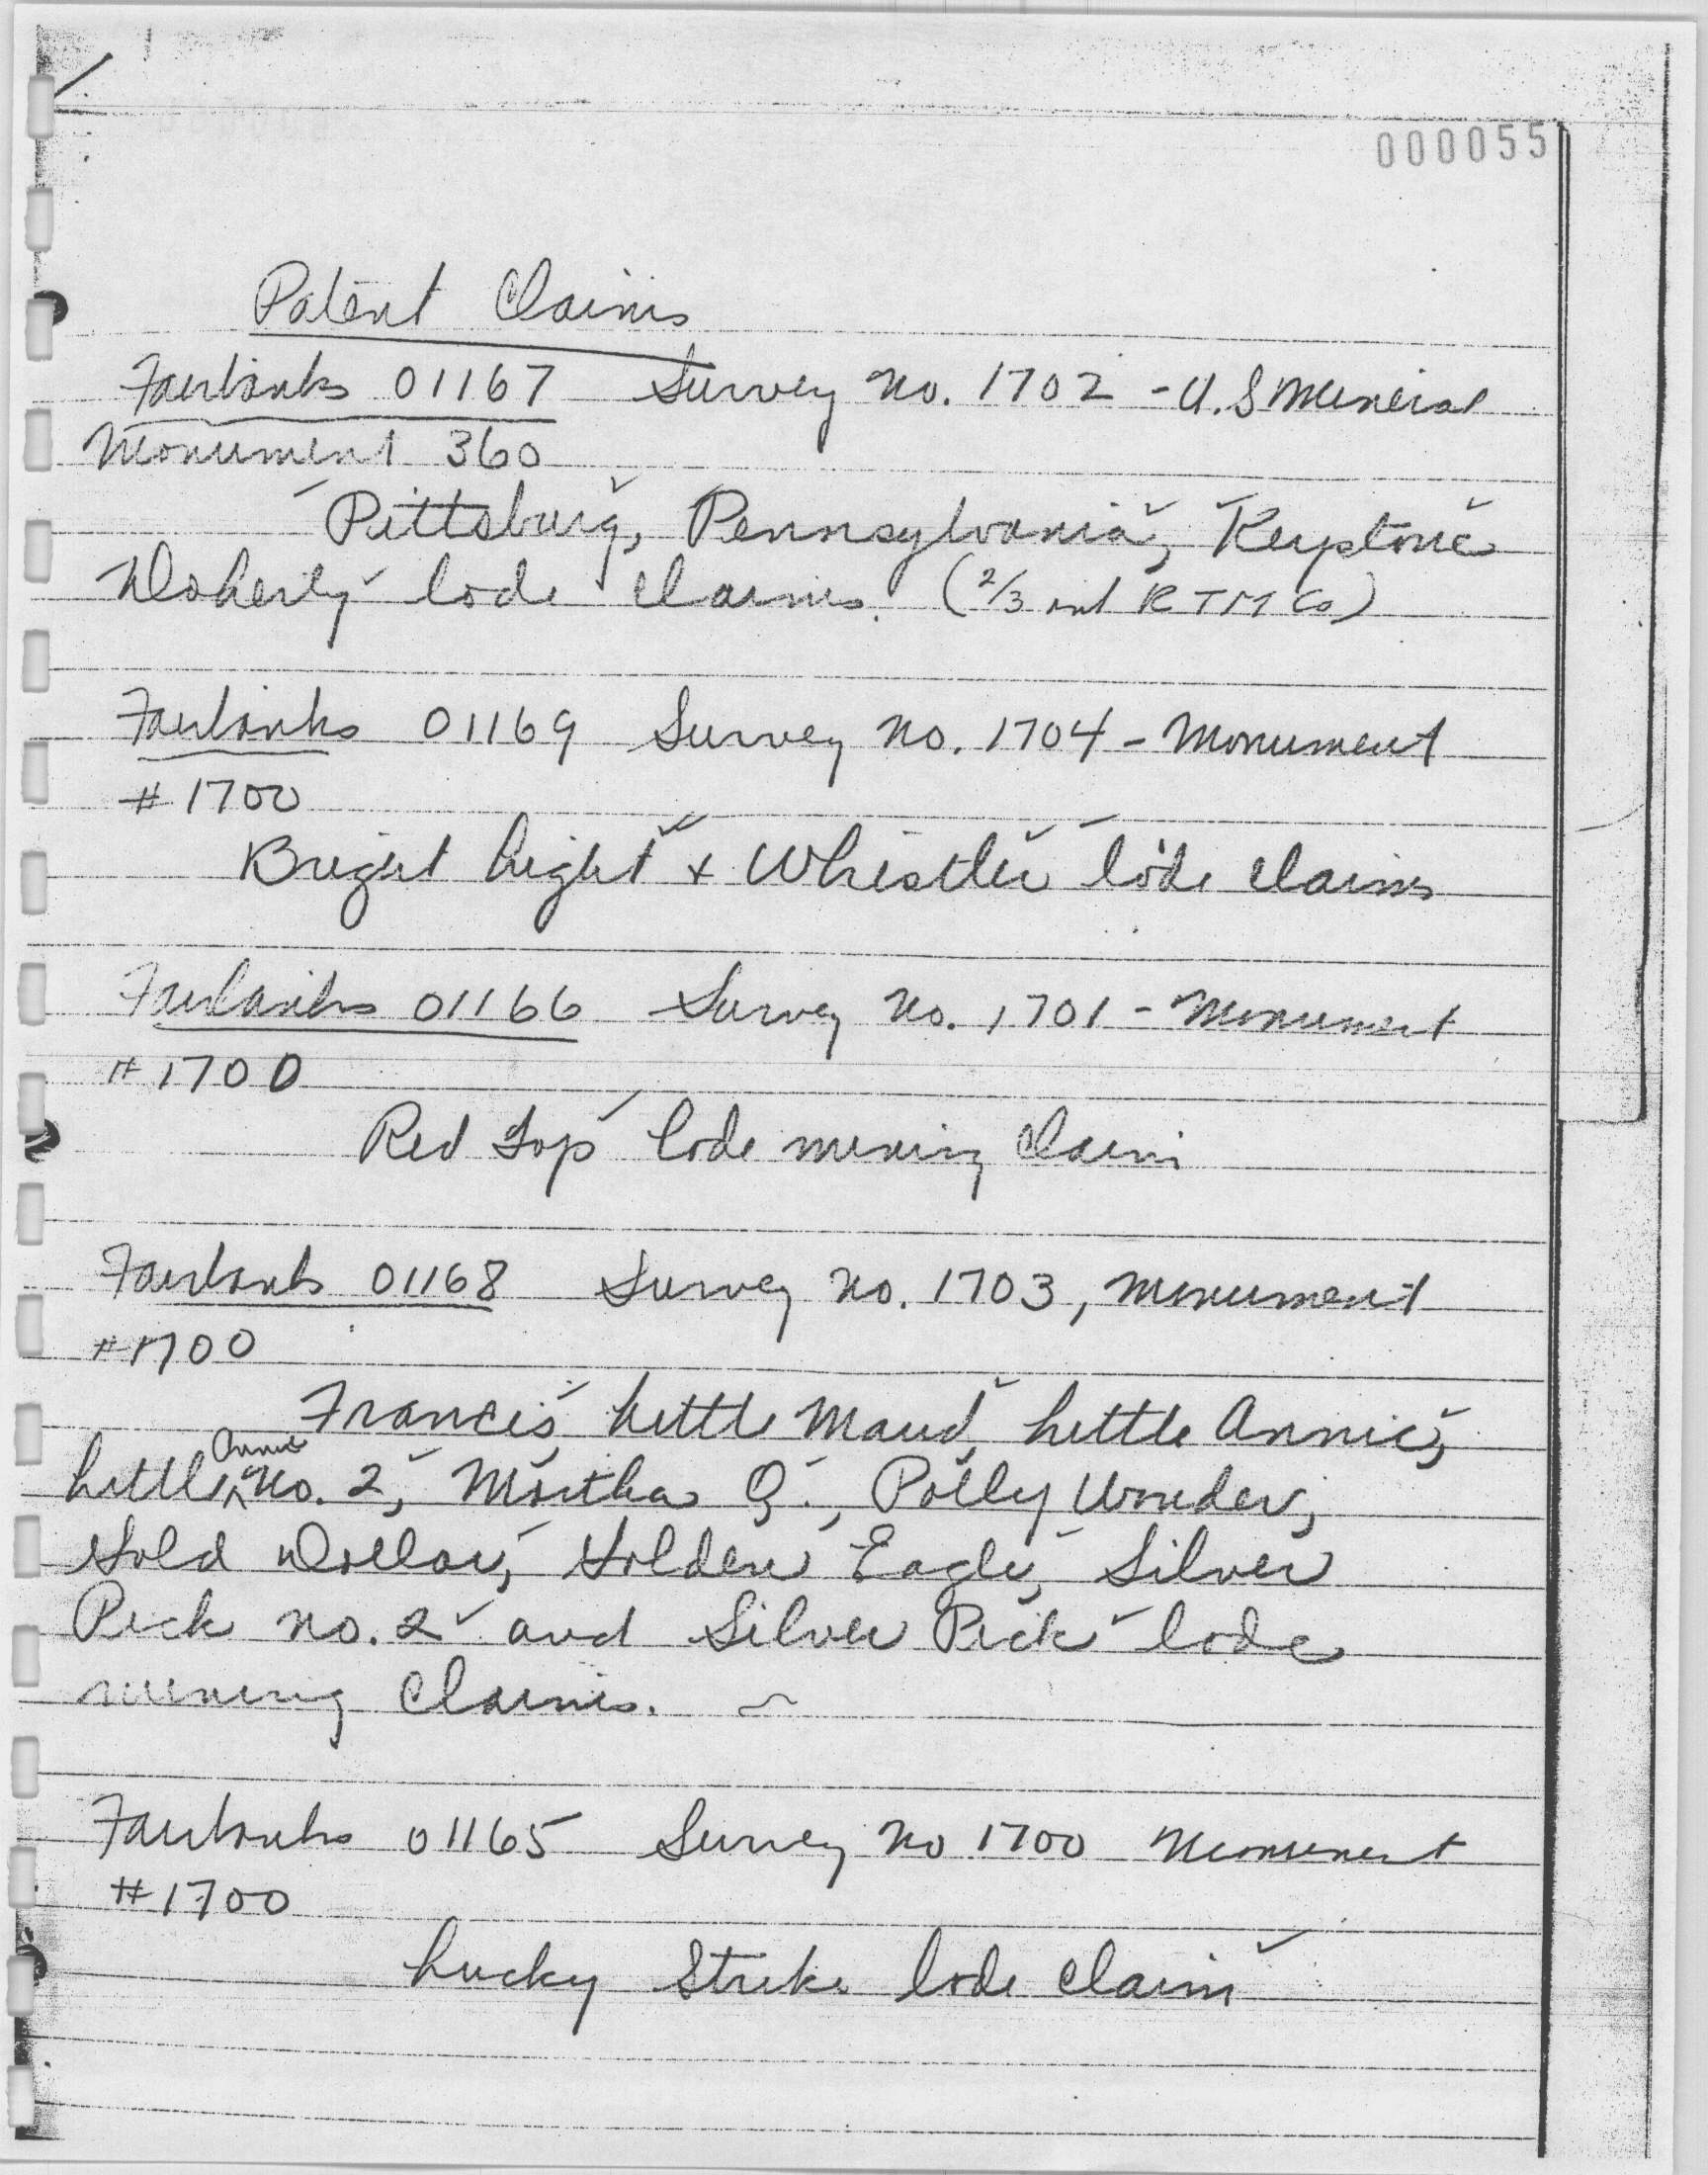 000055
Patent Claims
Fairbanks 01167 Survey No. 1702 - U.S Mineral
Monument 360
Pittsburg, Pennsylvania, Keystone
Doherty lode claims. (2/3 int R T M Co)
Fairbanks 01169 Survey No. 1704 - Monument
#1700
Bright Light + Whistler lode claims
Fairbanks 01166 Survey No. 1701 - Monument
#1700
Red Top lode mining claim
Fairbanks 01168 Survey No. 1703, Monument
#1700
Francis, Little Maud, Little Annie,
Little Annie No. 2, Martha Q., Polly Wonder,
Gold Dollar, Golden Eagle, Silver
Pick No. 2 and Silver Pick lode
mining claims.
Fairbanks 01165 Survey No 1700 Monument
#1700
Lucky Strike lode claim